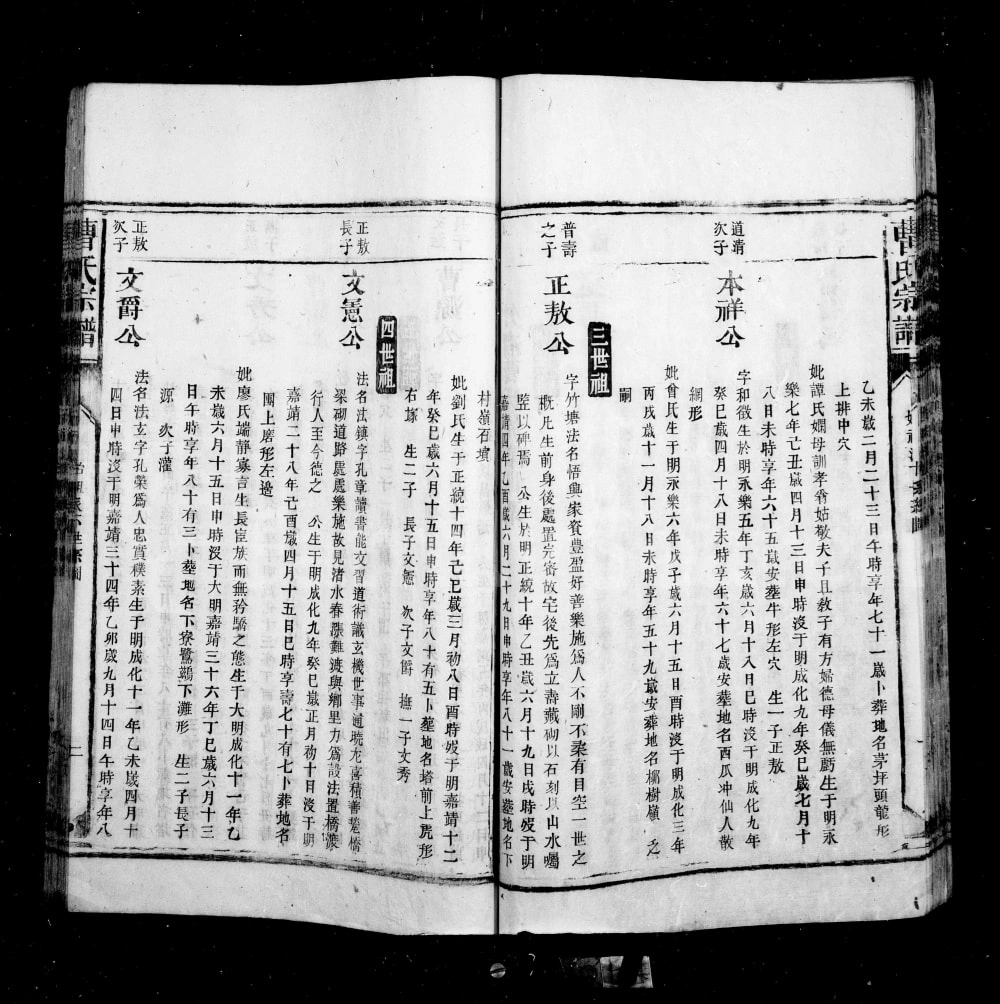 曹氏宗譜
乙未歲二月二十三日午時享年七十一歲卜葬地名茅坪頭龍形
上排中穴
妣譚氏嫺母訓孝翁姑敬夫子且教子有方婦德母儀無虧生于明永
樂七年己丑歲四月十三日申時沒于明成化九年癸巳歲七月十
八日未時享年六十五歲安葬牛形左穴　生一子正敖
道清
次子
本祥公
字和徵生於明永樂五年丁亥歲六月十八日巳時沒于明成化九年
癸巳歲四月十八日未時享年六十七歲安葬地名西瓜冲仙人散
網形
妣曾氏生于明永樂六年戊子歲六月十五日酉時沒于明成化三年
丙戌歲十一月十八日未時享年五十九歲安葬地名樹嶺　乏
嗣
三世祖
普壽
之子
正敖公
字竹塘法名悟興家貲豊盈好善樂施為人不剛不柔有目空一世之
概凡生前身後處置完密故宅後先為立壽藏砌以石刻以山水囑
監以碑焉　公生於明正統十年乙丑歲六月十九日戌時歿于明
嘉靖四年乙酉歲六月二十九日申時享年八十一歲安葬地名下
村嶺石墳
妣劉氏生于正統十四年己巳歲三月初八日酉時歿于明嘉靖十二
年癸巳歲六月十五日申時享年八十有五卜葬地名塔前上虎形
右塚　生二子　長子文憲　次子文爵　撫一子文秀
四世祖
正敖
長子
文憲公
法名法鎮字孔章讀書能文習道術識玄機世事通曉尤喜積善造橋
梁砌道路處處樂施故見渚水春漲難渡與鄉里力為設法置橋渡
行人至今德之　公生于明成化九年癸巳歲正月初十日沒于明
嘉靖二十八年己酉歲四月十五日巳時享壽七十有七卜葬地名
圍上磨形左邊
妣廖氏端靜寡言生長宦族而無矜驕之態生于大明成化十一年乙
未歲六月十五日申時沒于大明嘉靖三十六年丁巳歲六月十三
日午時享年八十有三卜葬地名下寮鷺鷀下灘形　生二子長子
源　次子灌
正敖
次子
文爵公
法名法玄字孔榮為人忠實樸素生于明成化十一年乙未歲四月十
四日申時沒于明嘉靖三十四年乙卯歲九月十四日午時享年八
曹氏宗譜
二